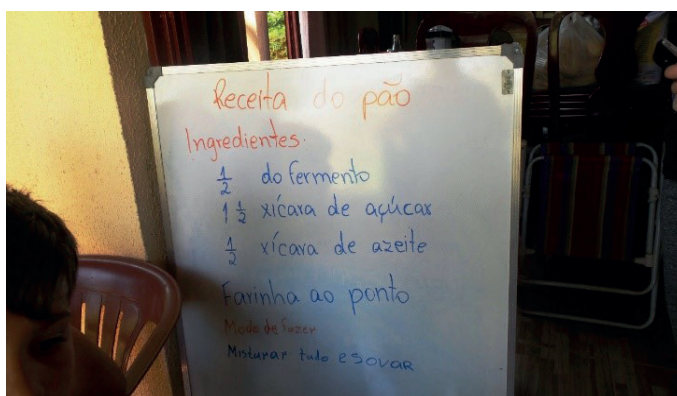 Receita do pão
Ingredientes.
1/2 do fermento
1 1/2 xícara de açúcar
1/2 xícara de azeite
Farinha ao ponto
Modo de fazer
Misturar tudo e sovar